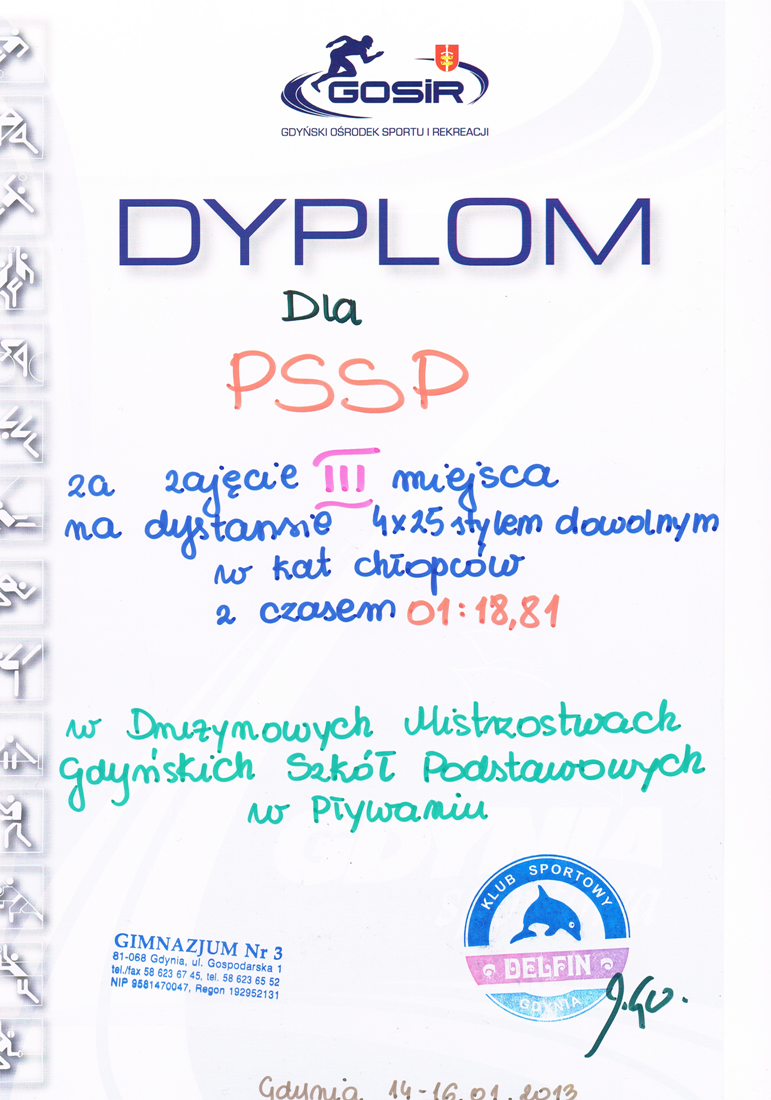 GOSiR
GDYŃSKI OŚRODEK SPORTU I REKREACJI
DYPLOM
Dla
PSSP
za zajęcie III miejsca
na dystansie 4x25 stylem dowolnym
w kat chłopców
z czasem 01:18,81
w Drużynowych Mistrzostwach
Gdyńskich Szkół Podstawowych
w Pływaniu
GIMNAZJUM Nr 3
81-068 Gdynia, ul. Gospodarska 1
tel./fax 58 623 67 45, tel. 58 623 65 52
NIP 9581470047, Regon 192952131
KLUB SPORTOWY
DELFIN
GDYNIA
Gdynia 14-16.01.2013